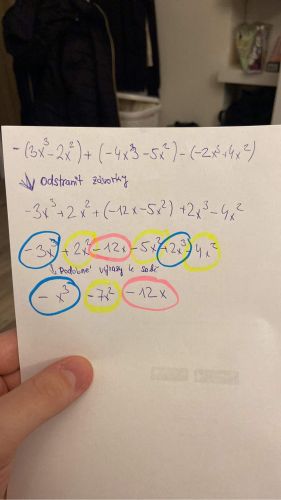 -(3x³-2x²)+(-4x³-5x²)-(-2x³+4x²)
Odstranit závorky
-3x³+2x²+(-12x-5x²)+2x³-4x²
-3x³+2x²-12x-5x²+2x³-4x²
↓ Podobné výrazy k sobě
-x³ -7x² -12x